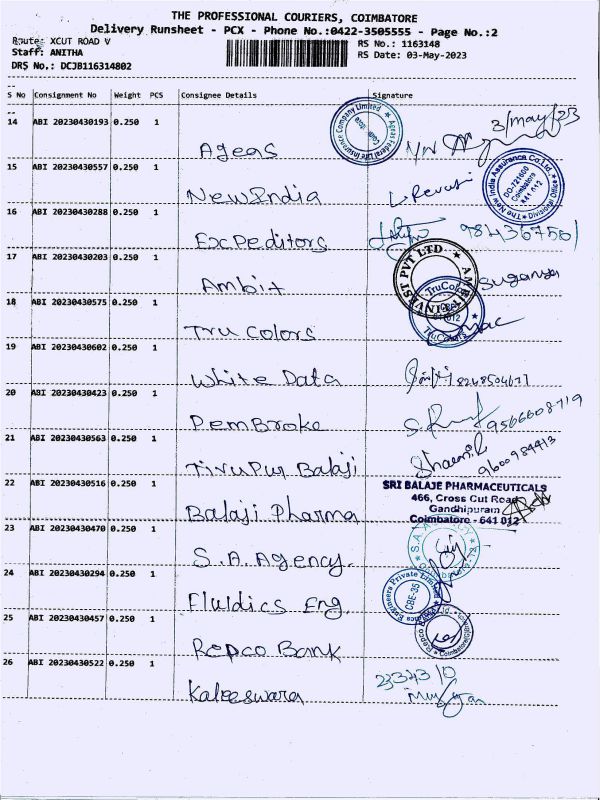 THE PROFESSIONAL COURIERS, COIMBATORE
Delivery Runsheet - PCX - Phone No.:0422-3505555 - Page No.:2
Route: XCUT ROAD V
RS No.: 1163148
Staff: ANITHA
RS Date: 03-May-2023
DRS No,: DCJB116314802
S No Consignment No Weight PCS Consignee Details Signature
14 ABI 20230430193 0.250 1 Ageas 3/may/23
Ageas Federal Life Insurance Company Limited
15 ABI 20230430557 0.250 1 New India Revati
The New India Assurance Co.Ltd. Divisional Office
DO-721600
Coimbatore
641 012
16 ABI 20230430288 0.250 1 Expeditors
17 ABI 20230430203 0.250 1 Ambit Suganya
PVT LTD
18 ABI 20230430575 0.250 1 Tru Colors
TruColors
19 ABI 20230430602 0.250 1 White Data
20 ABI 20230430423 0.250 1 PemBroke 9566608719
21 ABI 20230430563 0.250 1 Tirupur Balaji 9600984413
22 ABI 20230430516 0.250 1 Balaji Pharma
SRI BALAJE PHARMACEUTICALS
466, Cross Cut Road
Gandhipuram
Coimbatore - 641 012
23 ABI 20230430470 0.250 1 S.A. Agency.
24 ABI 20230430294 0.250 1 Fluidics Eng.
Engineers Private Limited
CBE-35
25 ABI 20230430457 0.250 1 Repco Bank
26 ABI 20230430522 0.250 1 Kaleeswara